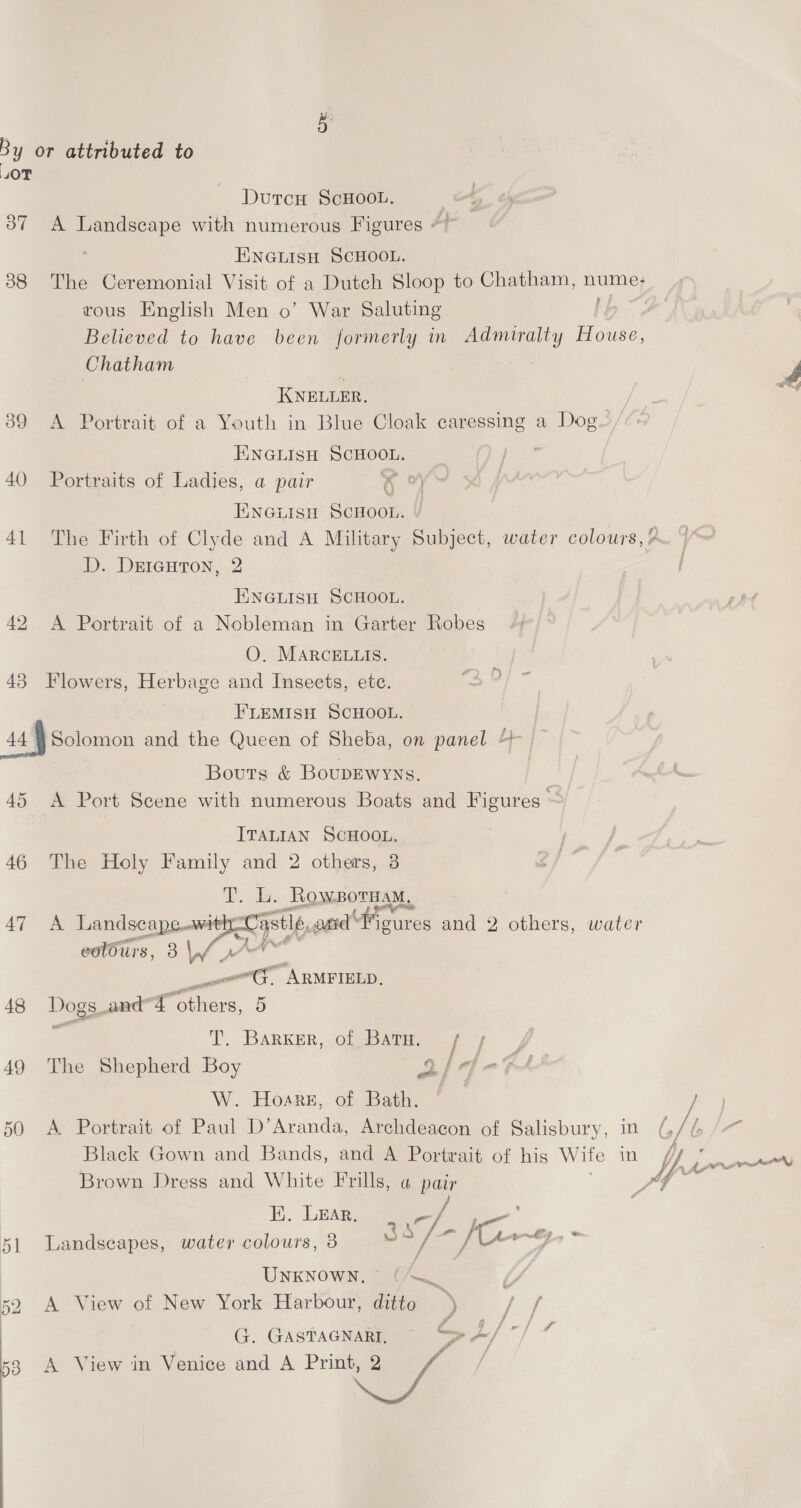 5
By or attributed to
LOT
DUTCH SCHOOL.
37 A Landscape with numerous Figures
ENGLISH SCHOOL.
38 The Ceremonial Visit of a Dutch Sloop to Chatham, nume-
rous English Men o' War Saluting
Believed to have been formerly in Admiralty House,
Chatham
KNELLER.
39 A Portrait of a Youth in Blue Cloak caressing a Dog
ENGLISH SCHOOL.
40 Portraits of Ladies, a pair
ENGLISH SCHOOL.
41 The Firth of Clyde and A Military Subject, water colours,
D. DEIGHTON, 2
ENGLISH SCHOOL.
42 A Portrait of a Nobleman in Garter Robes
O. MARCELLIS.
43 Flowers, Herbage and Insects, etc. 30/-
FLEMISH SCHOOL.
44 Solomon and the Queen of Sheba, on panel
BOUTS & BOUDEWYNS.
45 A Port Scene with numerous Boats and Figures
ITALIAN SCHOOL.
46 The Holy Family and 2 others, 3
T. L. ROWBOTHAM.
47 A Landscape with Castle, and Figures and 2 others, water
colours, 3
G. ARMFIELD.
48 Dogs and 4 others, 5
T. BARKER, of BATH.
49 The Shepherd Boy
W. HOARE, of Bath.
50 A Portrait of Paul D'Aranda, Archdeacon of Salisbury, in
Black Gown and Bands, and A Portrait of his Wife in
Brown Dress and White Frills, a pair
E. LEAR.
51 Landscapes, water colours, 3 35/-
UNKNOWN.
52 A View of New York Harbour, ditto
G. GASTAGNARI.
53 A View in Venice and A Print, 2